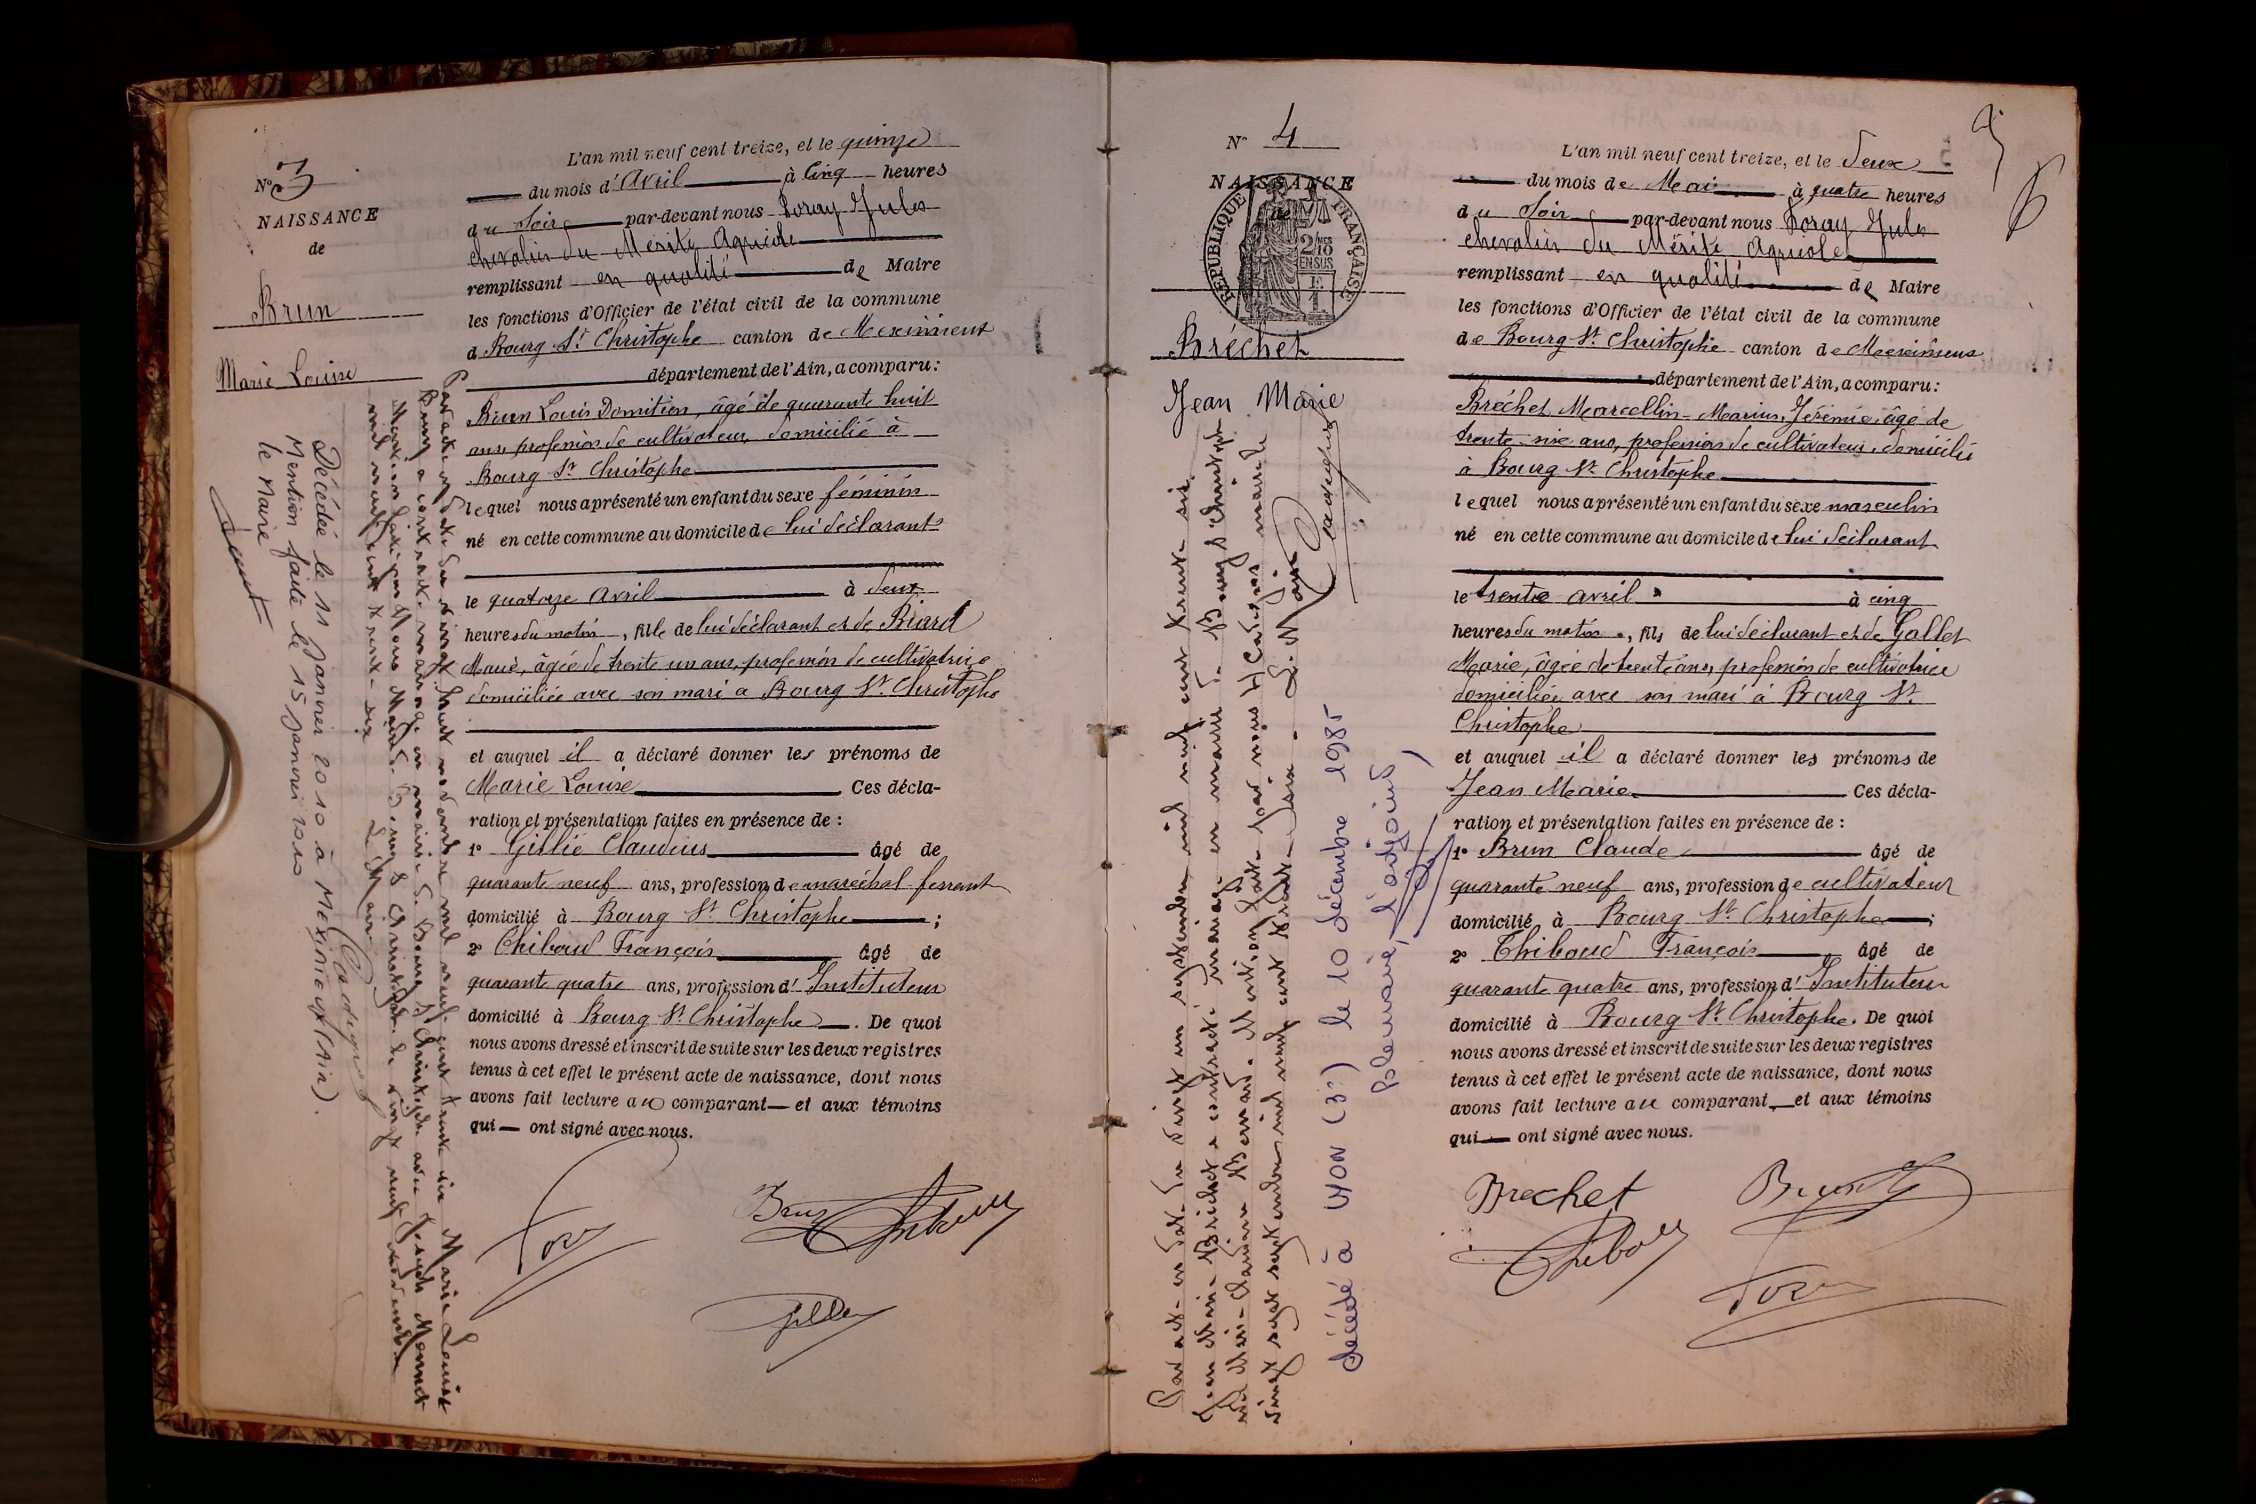 N° 3
NAISSANCE
de
Brun
Marie Louise
L'an mil neuf cent treize, et le quinze
du mois d'Avril à Cinq heures
du Soir par-devant nous Poray Jules
chevalier du Mérite Agricole
remplissant en qualité de Maire
les fonctions d'Officier de l'état civil de la commune
d Bourg St Christophe canton de Meximieux
département de l'Ain, a comparu :
Brun Louis Domitien, âgé de quarante huit
ans, profession de cultivateur, domicilié à
Bourg St Christophe
lequel nous a présenté un enfant du sexe féminin
né en cette commune au domicile de lui déclarant
le quatorze avril à deux
heures du matin, fille de lui déclarant et de Biard
Marie, âgée de trente un ans, profession de cultivatrice
domiciliée avec son mari à Bourg St Christophe
et auquel il a déclaré donner les prénoms de
Marie Louise Ces décla-
ration et présentation faites en présence de :
1° Gillié Claudius âgé de
quarante neuf ans, profession de maréchal ferrant
domicilié à Bourg St Christophe ;
2° Thiboud François âgé de
quarante quatre ans, profession d'Instituteur
domicilié à Bourg St Christophe. De quoi
nous avons dressé et inscrit de suite sur les deux registres
tenus à cet effet le présent acte de naissance, dont nous
avons fait lecture au comparant et aux témoins
qui ont signé avec nous.
Brun
Par acte en date du vingt huit novembre mil neuf cent trente six Marie Louise
Brun a contracté mariage en mairie de Bourg St Christophe avec Joseph Monnet
Mention faite par Nous Maire de Bourg St Christophe le vingt neuf novembre
mil neuf cent trente-six Le Maire
Décédée le 11 Janvier 2010 à Meximieux (Ain).
Mention faite le 15 Janvier 2010
le Maire
N° 4
NAISSANCE
de
RÉPUBLIQUE FRANÇAISE
Bréchet
Jean Marie
L'an mil neuf cent treize, et le deux
du mois de Mai à quatre heures
du Soir par-devant nous Poray Jules
chevalier du Mérite Agricole
remplissant en qualité de Maire
les fonctions d'Officier de l'état civil de la commune
de Bourg St Christophe canton de Meximieux
département de l'Ain, a comparu :
Bréchet Marcellin-Marius, Jérémie âgé de
trente-six ans, profession de cultivateur, domicilié
à Bourg St Christophe
lequel nous a présenté un enfant du sexe masculin
né en cette commune au domicile de lui déclarant
le trente avril à cinq
heures du matin, fils de lui déclarant et de Gallet
Marie, âgée de trente ans, profession de cultivatrice
domiciliée avec son mari à Bourg St
Christophe
et auquel il a déclaré donner les prénoms de
Jean Marie Ces décla-
ration et présentation faites en présence de :
1° Brun Claude âgé de
quarante neuf ans, profession de cultivateur
domicilié à Bourg St Christophe ;
2° Thiboud François âgé de
quarante quatre ans, profession d'Instituteur
domicilié à Bourg St Christophe. De quoi
nous avons dressé et inscrit de suite sur les deux registres
tenus à cet effet le présent acte de naissance, dont nous
avons fait lecture au comparant et aux témoins
qui ont signé avec nous.
Brechet
Brun
Par acte en date du vingt un septembre mil neuf cent trente six
Jean Marie Bréchet a contracté mariage en mairie de Bourg St Christophe
Marie-Claudine Bernard. Mention faite par nous
vingt sept septembre mil neuf cent trente-six. Le Maire
décédé à LYON (3e) le 10 décembre 1985
l'adjoint,